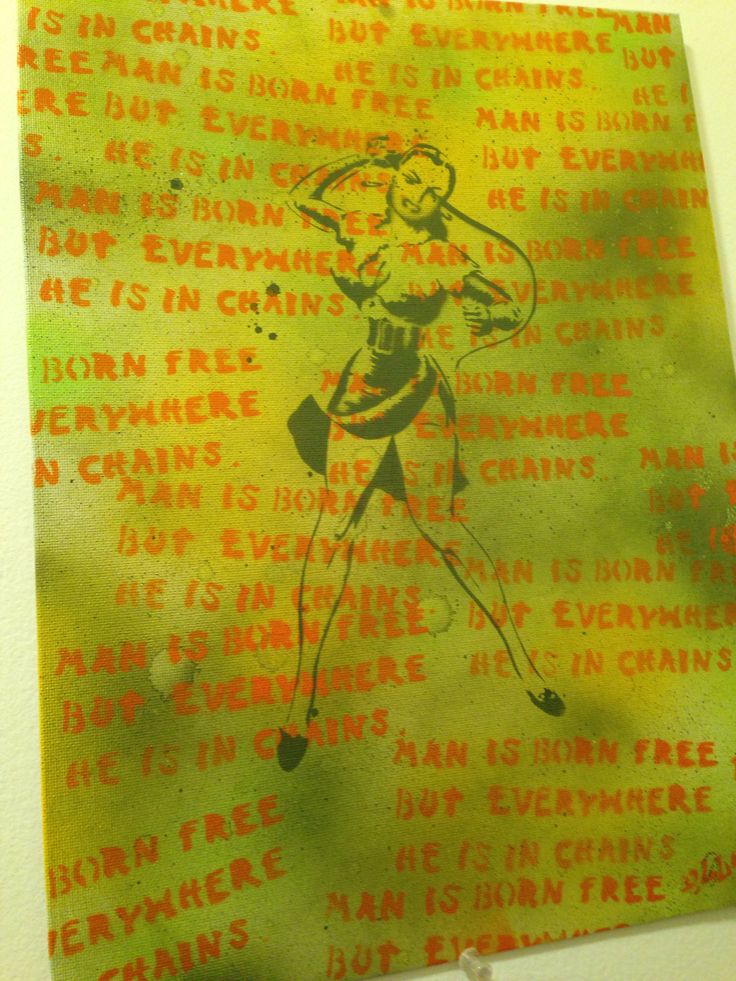 HERE
IS IN CHAINS.
MAN IS BORN FREE
BUT EVERYWHERE
HE IS IN CHAINS.
MAN
BUT
HE I
REE
ERE
S.
MAN IS BORN FREE
BUT EVERYWHERE
HE IS IN CHAINS
MAN IS BORN F
BUT EVERYWH
HE IS IN CHAIN
MAN IS BORN FREE
BUT EVERYWHERE
HE IS IN CHAINS.
MAN IS BORN FREE
EVERYWHERE
HE IS IN CHAINS.
BORN FREE
VERYWHERE
N CHAINS.
MAN IS BORN FREE
BUT EVERYWHERE
HE IS IN CHAINS.
MAN IS
BUT E
HE IS
MAN IS BORN FREE
BUT EVERYWHERE
HE IS IN CHAINS.
MAN IS BORN FRE
BUT EVERYWHER
HE IS IN CHAINS
MAN IS BORN FREE
BUT EVERYWHERE
HE IS IN CHAINS.
MAN IS BORN FREE
BUT EVERYWHERE
HE IS IN CHAINS
BORN FREE
VERYWHERE
CHAINS.
MAN IS BORN FREE
BUT EVERYWHERE